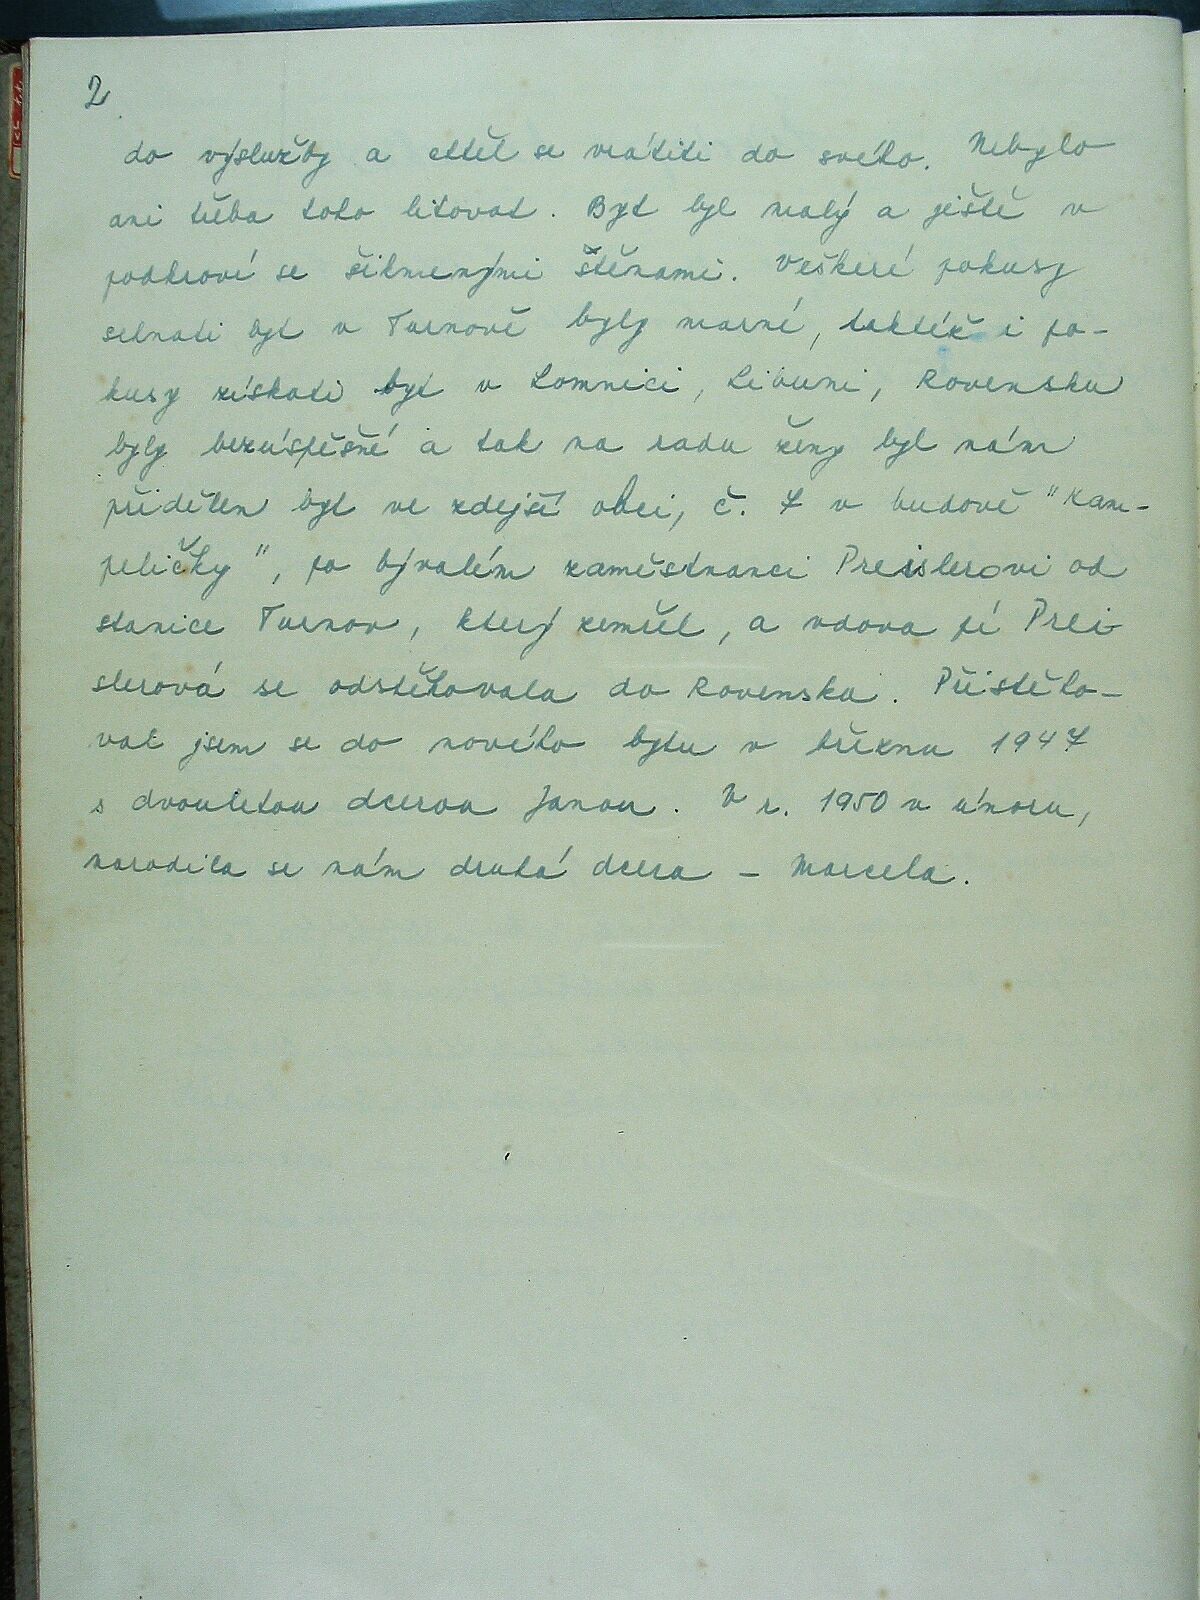 2
do výslužby a chtěl se vrátiti do svého. Nebylo
ani třeba toho litovat. Byt byl malý a ještě v
podkroví se šikmenými štěnami. Veškeré pokusy
sehnati byt v Turnově byly marné, taktéž i po-
kusy získati byt v Lomnici, Libuni, Rovensku
byly bezúspěšné a tak na radu ženy byl nám
přidělen byt ve zdejší obci, č. 7 v budově "Kam-
peličky", po bývalém zaměstnanci Preislerovi od
stanice Turnov, který zemřel, a vdova pí Prei-
slerová se odstěhovala do Rovenska. Přistěho-
val jsem se do nového bytu v březnu 1947
s dvouletou dcerou Janou. V r. 1950 v únoru,
narodila se nám druhá dcera - Marcela.